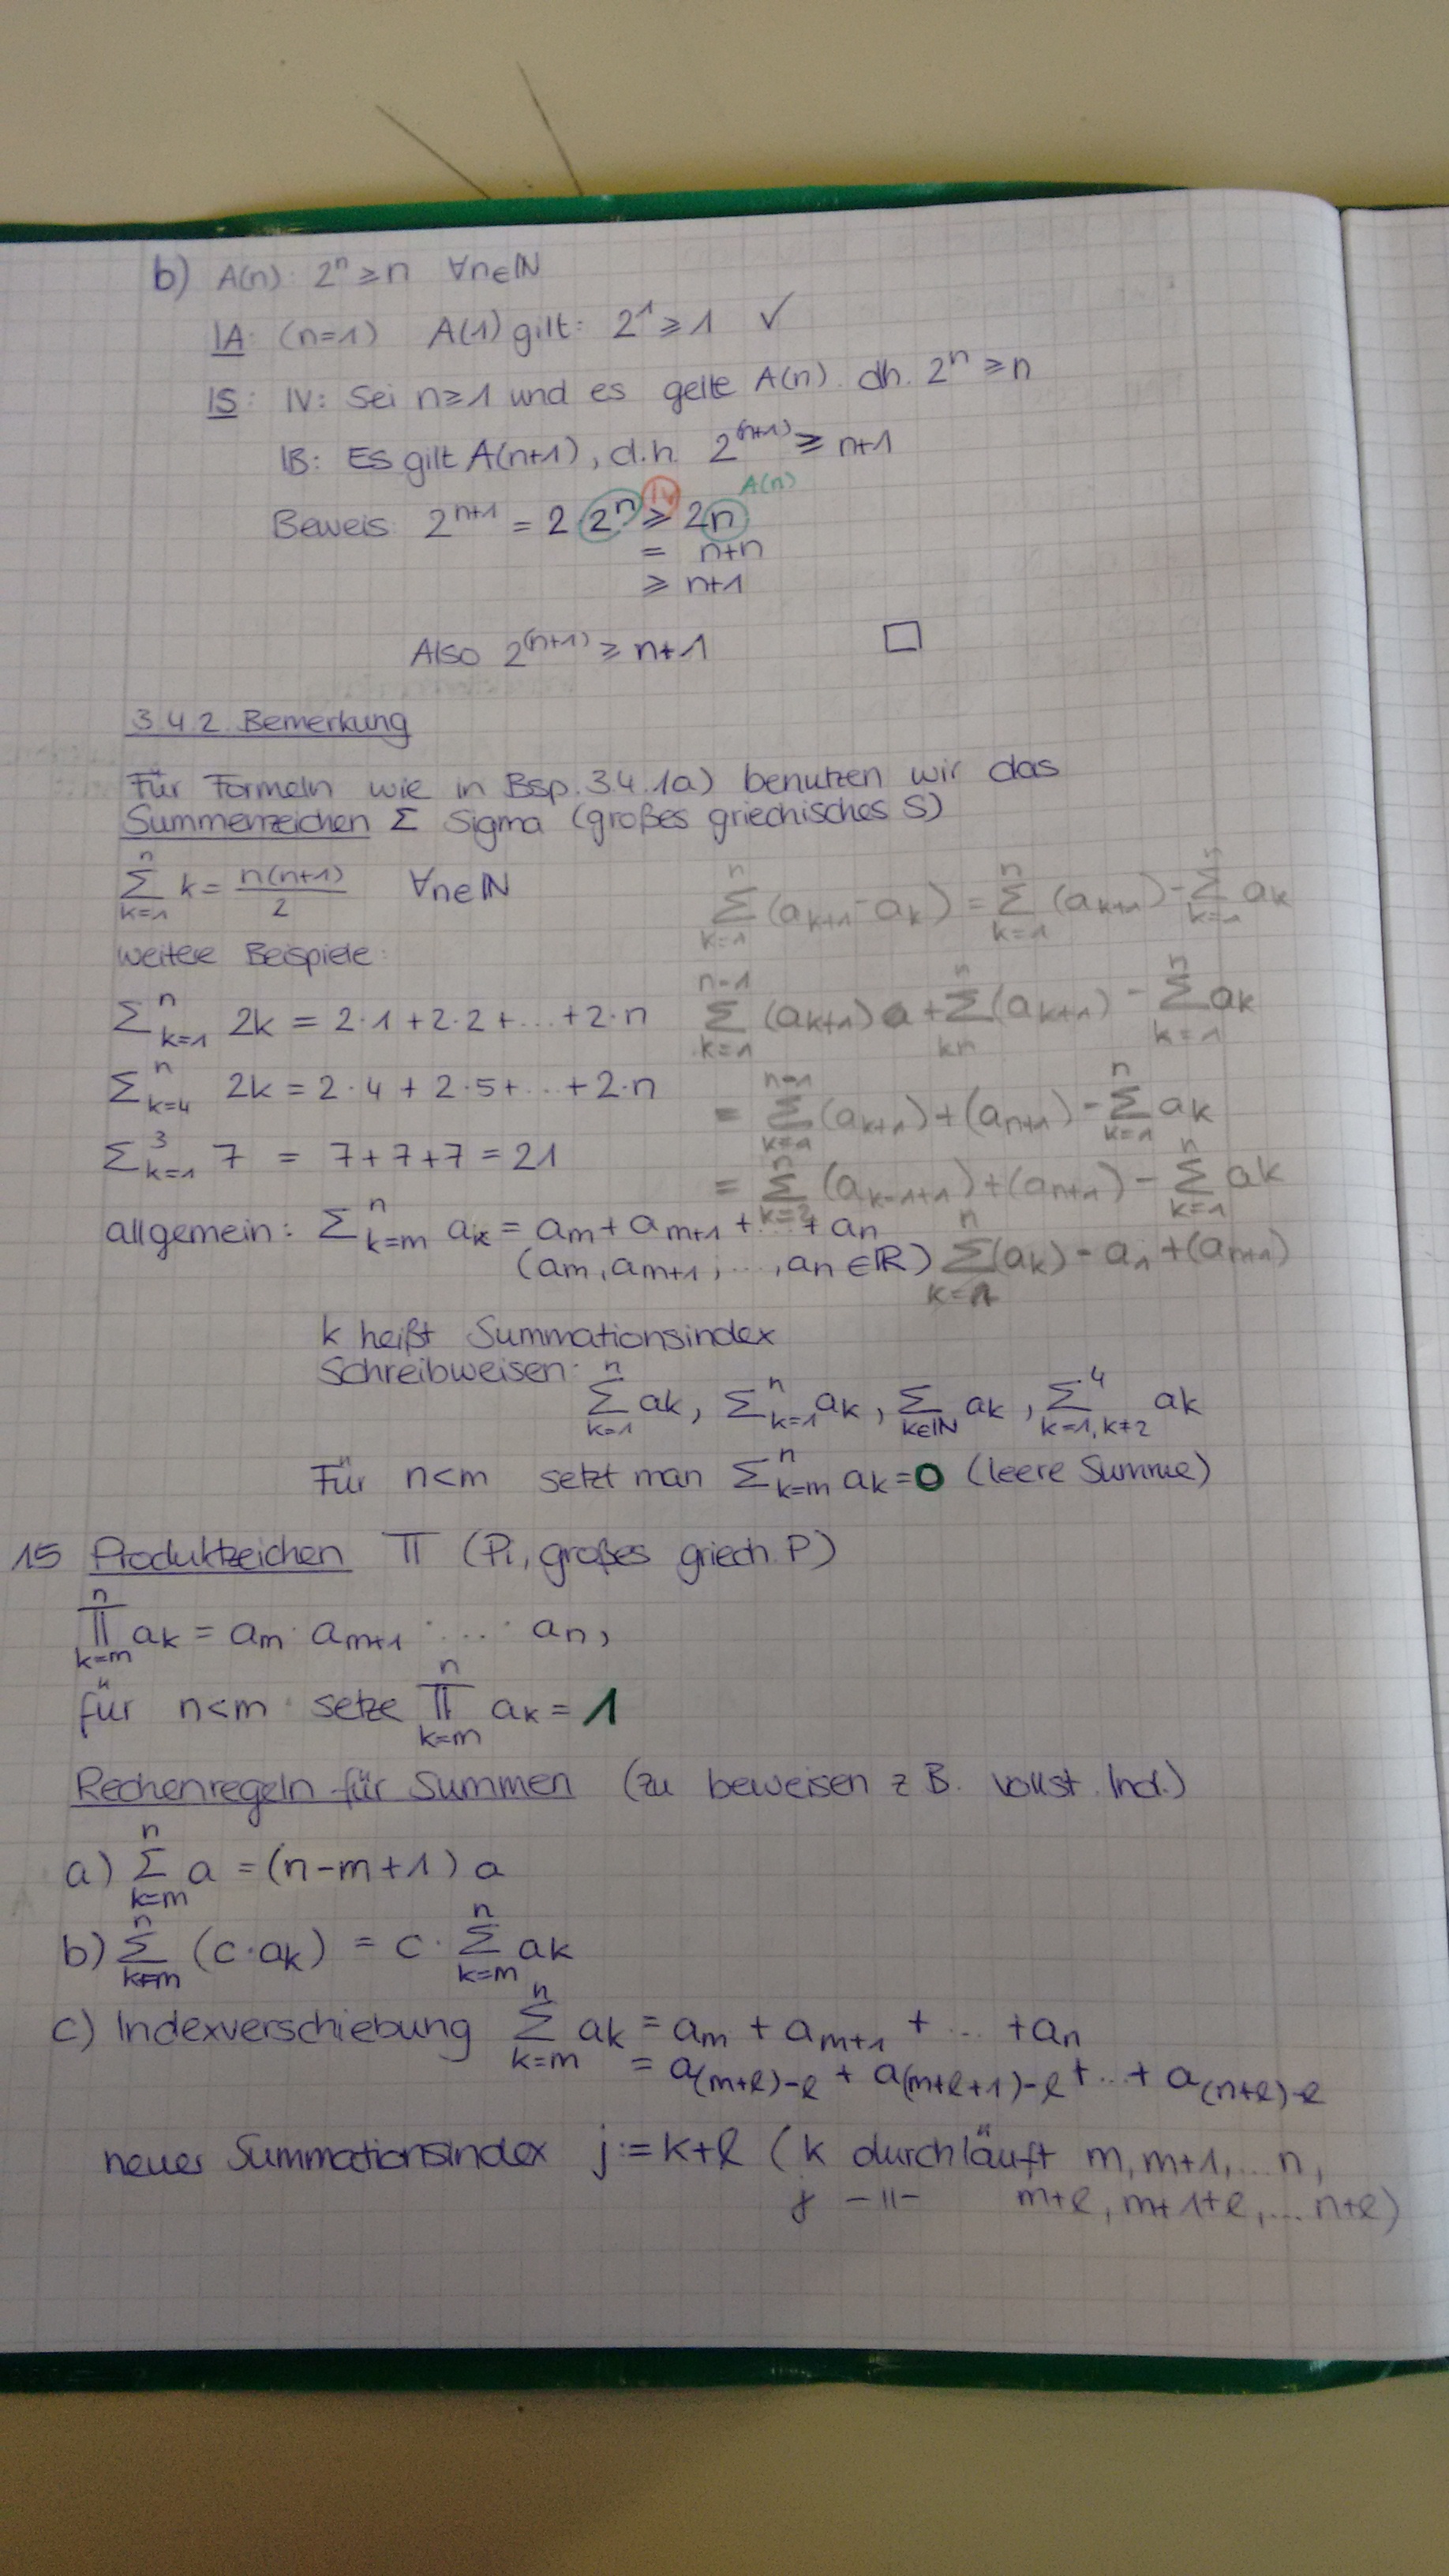 b) A(n): 2ⁿ ≥ n ∀n∈ℕ
IA: (n=1) A(1) gilt: 2¹ ≥ 1 ✓
IS: IV: Sei n≥1 und es gelte A(n). dh. 2ⁿ ≥ n
IB: Es gilt A(n+1), d.h. 2^(n+1) ≥ n+1
IV A(n)
Beweis: 2^{n+1} = 2 · 2ⁿ ≥ 2n
= n+n
≥ n+1
Also 2^(n+1) ≥ n+1 □
3.4.2. Bemerkung
Für Formeln wie in Bsp. 3.4.1a) benutzen wir das
Summenzeichen Σ Sigma (großes griechisches S)
Σ_{k=1}^{n} k = n(n+1)/2 ∀n∈ℕ
weitere Beispiele:
Σ_{k=1}^{n} 2k = 2·1 + 2·2 + ... + 2·n
Σ_{k=4}^{n} 2k = 2·4 + 2·5 + ... + 2·n
Σ_{k=1}^{3} 7 = 7+7+7 = 21
allgemein: Σ_{k=m}^{n} a_k = a_m + a_{m+1} + ... + a_n
(a_m, a_{m+1}, ..., a_n ∈ ℝ)
Σ_{k=1}^{n} (a_{k+1} - a_k) = Σ_{k=1}^{n} (a_{k+1}) - Σ_{k=1}^{n} a_k
Σ_{k=1}^{n-1} (a_{k+1}) + Σ^{n} (a_{k+1}) - Σ_{k=1}^{n} a_k
= Σ_{k=1}^{n-1} (a_{k+1}) + (a_{n+1}) - Σ_{k=1}^{n} a_k
= Σ_{k=2}^{n} (a_{k-1+1}) + (a_{n+1}) - Σ_{k=1}^{n} a_k
Σ_{k=1}^{n} (a_k) - a_1 + (a_{n+1})
k heißt Summationsindex
Schreibweisen: Σ_{k=1}^{n} a_k, Σ_{k=1}^{n} a_k, Σ_{k∈ℕ} a_k, Σ_{k=1, k≠2}^{4} a_k
Für n<m setzt man Σ_{k=m}^{n} a_k = 0 (leere Summe)
15 Produktzeichen Π (Pi, großes griech. P)
Π_{k=m}^{n} a_k = a_m · a_{m+1} · ... · a_n,
für n<m setze Π_{k=m}^{n} a_k = 1
Rechenregeln für Summen (zu beweisen z.B. vollst. Ind.)
a) Σ_{k=m}^{n} a = (n-m+1) a
b) Σ_{k=m}^{n} (c·a_k) = c · Σ_{k=m}^{n} a_k
c) Indexverschiebung Σ_{k=m}^{n} a_k = a_m + a_{m+1} + ... + a_n
= a_{(m+ℓ)-ℓ} + a_{(m+ℓ+1)-ℓ} + ... + a_{(n+ℓ)-ℓ}
neuer Summationsindex j := k+ℓ (k durchläuft m, m+1, ... n,
j -"- m+ℓ, m+1+ℓ, ... n+ℓ)